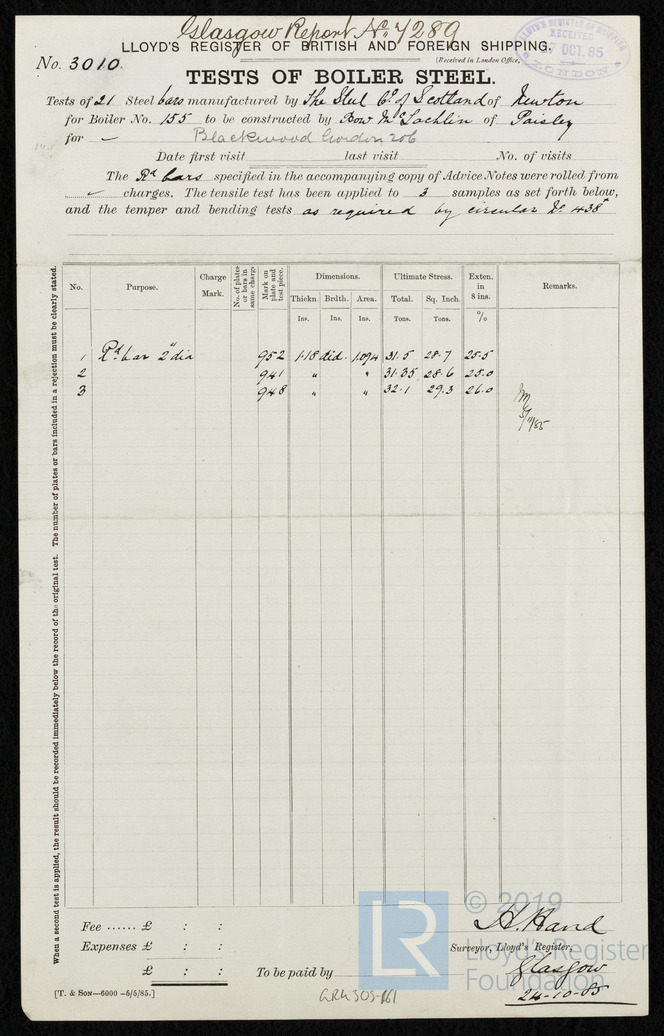 Glasgow Report No. 7289
LLOYD'S REGISTER OF BRITISH AND FOREIGN SHIPPING.
LLOYD'S REGISTER OF SHIPPING
RECEIVED
7 OCT. 85
LONDON
No. 3010.
(Received in London Office,
TESTS OF BOILER STEEL.
Tests of 21 Steel bars manufactured by The Steel Co. of Scotland of Newton
for Boiler No. 155 to be constructed by Bow McLachlin of Paisley
for — Blackwood Gordon 206
Date first visit last visit No. of visits
The Rd bars specified in the accompanying copy of Advice Notes were rolled from
charges. The tensile test has been applied to 3 samples as set forth below,
and the temper and bending tests as required by circular No. 438
No. Purpose. Charge Mark. No. of plates or bars in same charge Mark on plate and test piece. Dimensions. Ultimate Stress. Exten. in 8 ins. Remarks.
Thickn. Brdth. Area. Total. Sq. Inch.
Ins. Ins. Ins. Tons. Tons. %
1 Rd bar 2" dia 952 1·18 did. 1.094 31.5 28·7 25·5
2 941 " " 31·35 28·6 25.0
3 948 " " 32·1 29.3 26.0
11/85
When a second test is applied, the result should be recorded immediately below the record of the original test. The number of plates or bars included in a rejection must be clearly stated.
Fee ...... £ : :
Expenses £ : :
£ : :
To be paid by
H. Hand
Surveyor, Lloyd's Register,
Glasgow
24-10-85
[T. & Son—6000 -5/5/85.]
LR
© 2019
Lloyd's Register
Foundation